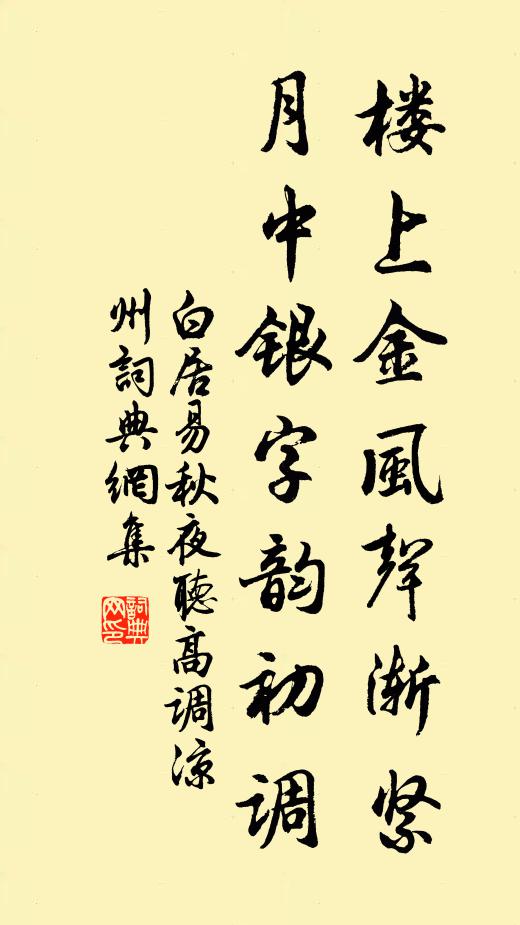 楼上金風聲渐紧
月中銀字韵初调
白居易秋夜聽高调凉
州詞典網集
詞典网印